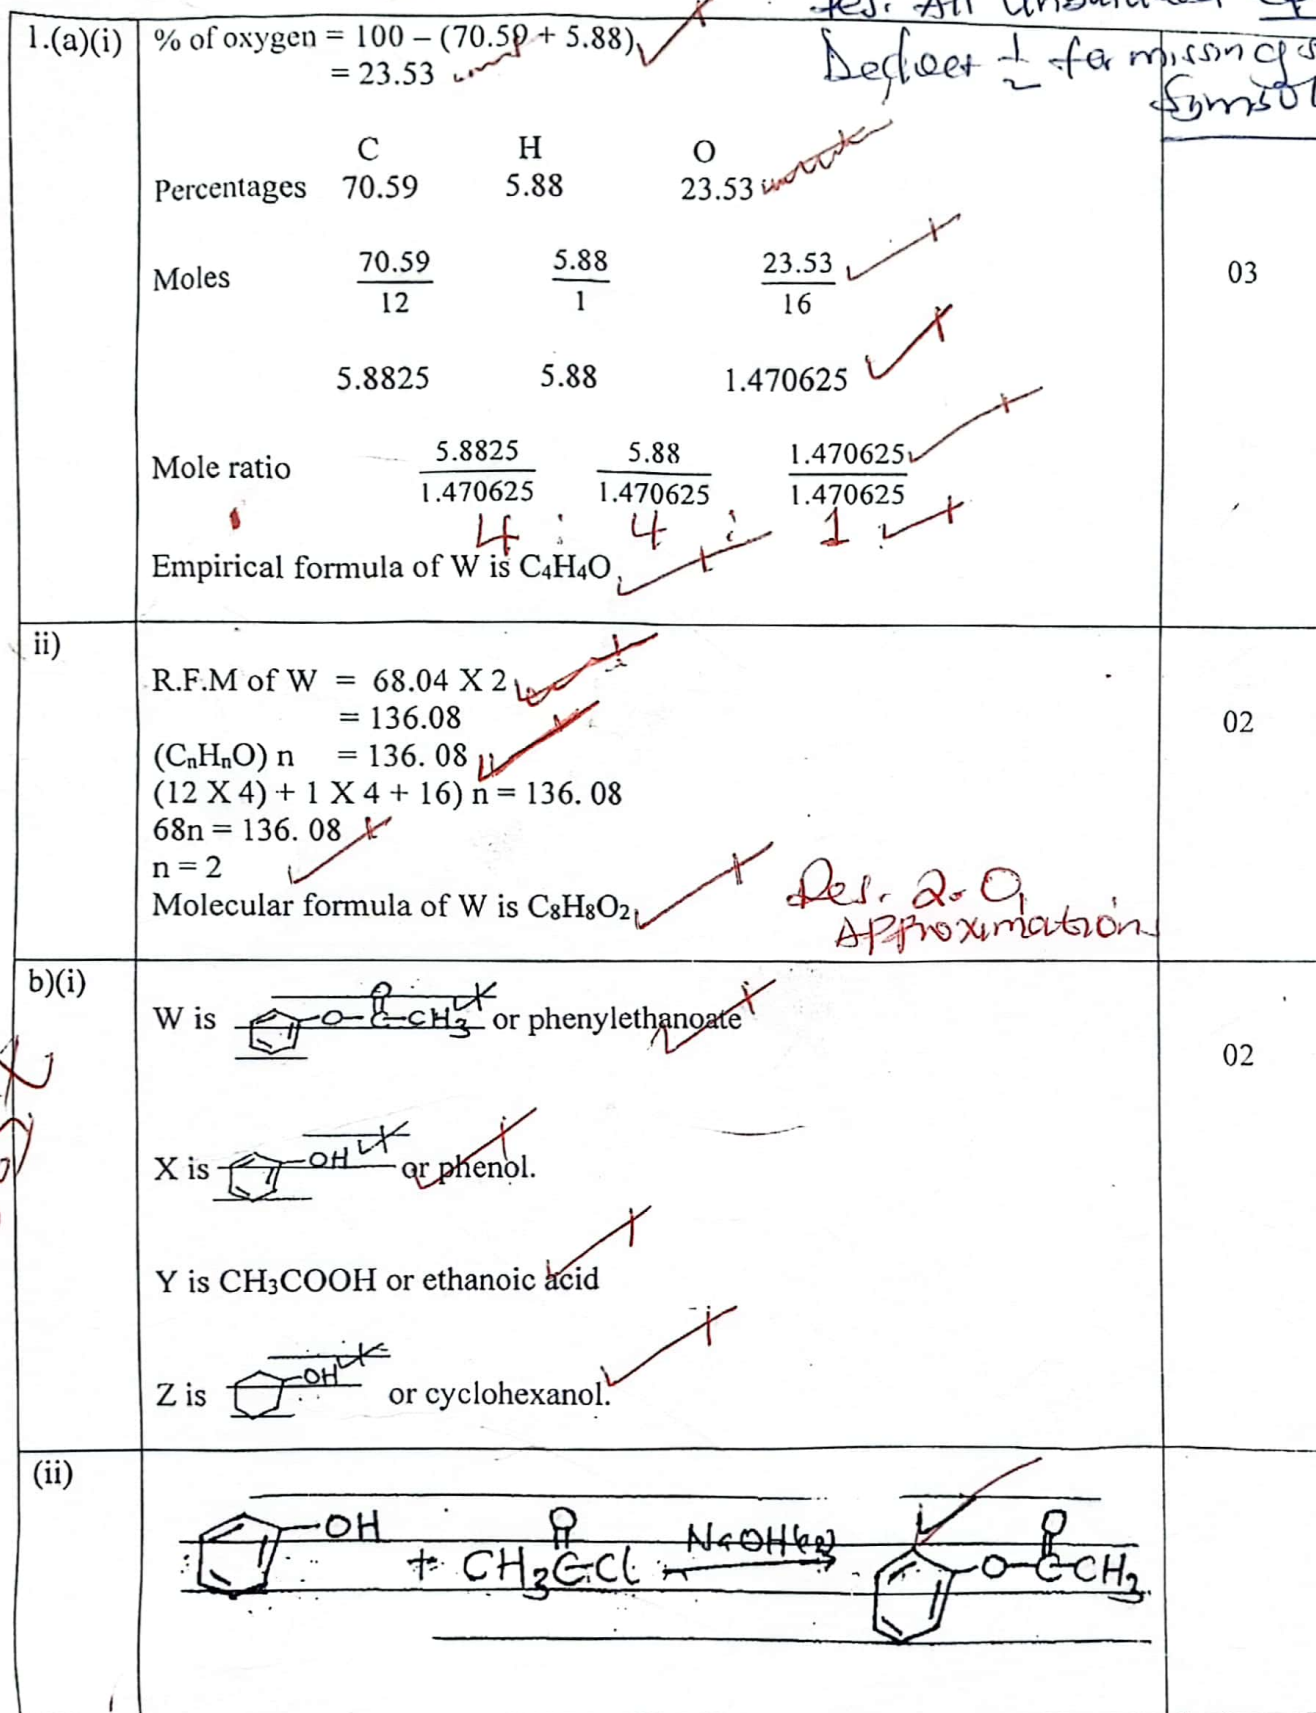 1.(a)(i) % of oxygen = 100 – (70.59 + 5.88)
= 23.53
Deduct 1/2 for missing
Symbol
C H O
Percentages 70.59 5.88 23.53
Moles 70.59/12 5.88/1 23.53/16
03
5.8825 5.88 1.470625
Mole ratio 5.8825/1.470625 5.88/1.470625 1.470625/1.470625
4 : 4 : 1
Empirical formula of W is C₄H₄O
ii)
R.F.M of W = 68.04 X 2
= 136.08
02
(CₙHₙO) n = 136. 08
(12 X 4) + 1 X 4 + 16) n = 136. 08
68n = 136. 08
n = 2
Molecular formula of W is C₈H₈O₂
2.0
Approximation
b)(i)
W is O-C-CH₃ O or phenylethanoate
02
X is OH or phenol.
Y is CH₃COOH or ethanoic acid
Z is OH or cyclohexanol.
(ii)
OH + CH₃C-Cl O NaOH(aq) O-C-CH₃ O